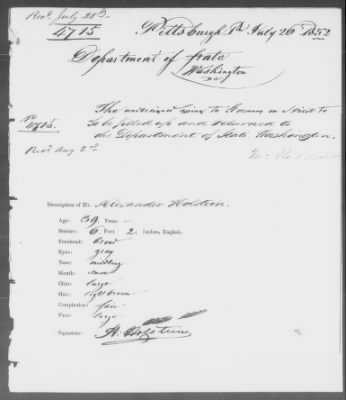 Recd. July 28th
4715
Pittsburgh Pa July 26th 1852
Department of State
Washington
The undersigned going to on a visit to
No 4715.
be filled up and returned to
the Department of State Washington.
Recd Aug 2d
Description of Mr. Alexander Holstein.
Age: 39 Years —
Stature: 6 Feet 2 Inches, English.
Forehead:
Eyes: gray
Nose: middling
Mouth:
Chin: large
Hair: light brown
Complexion: fair
Face: large
Signature: A. Holstein